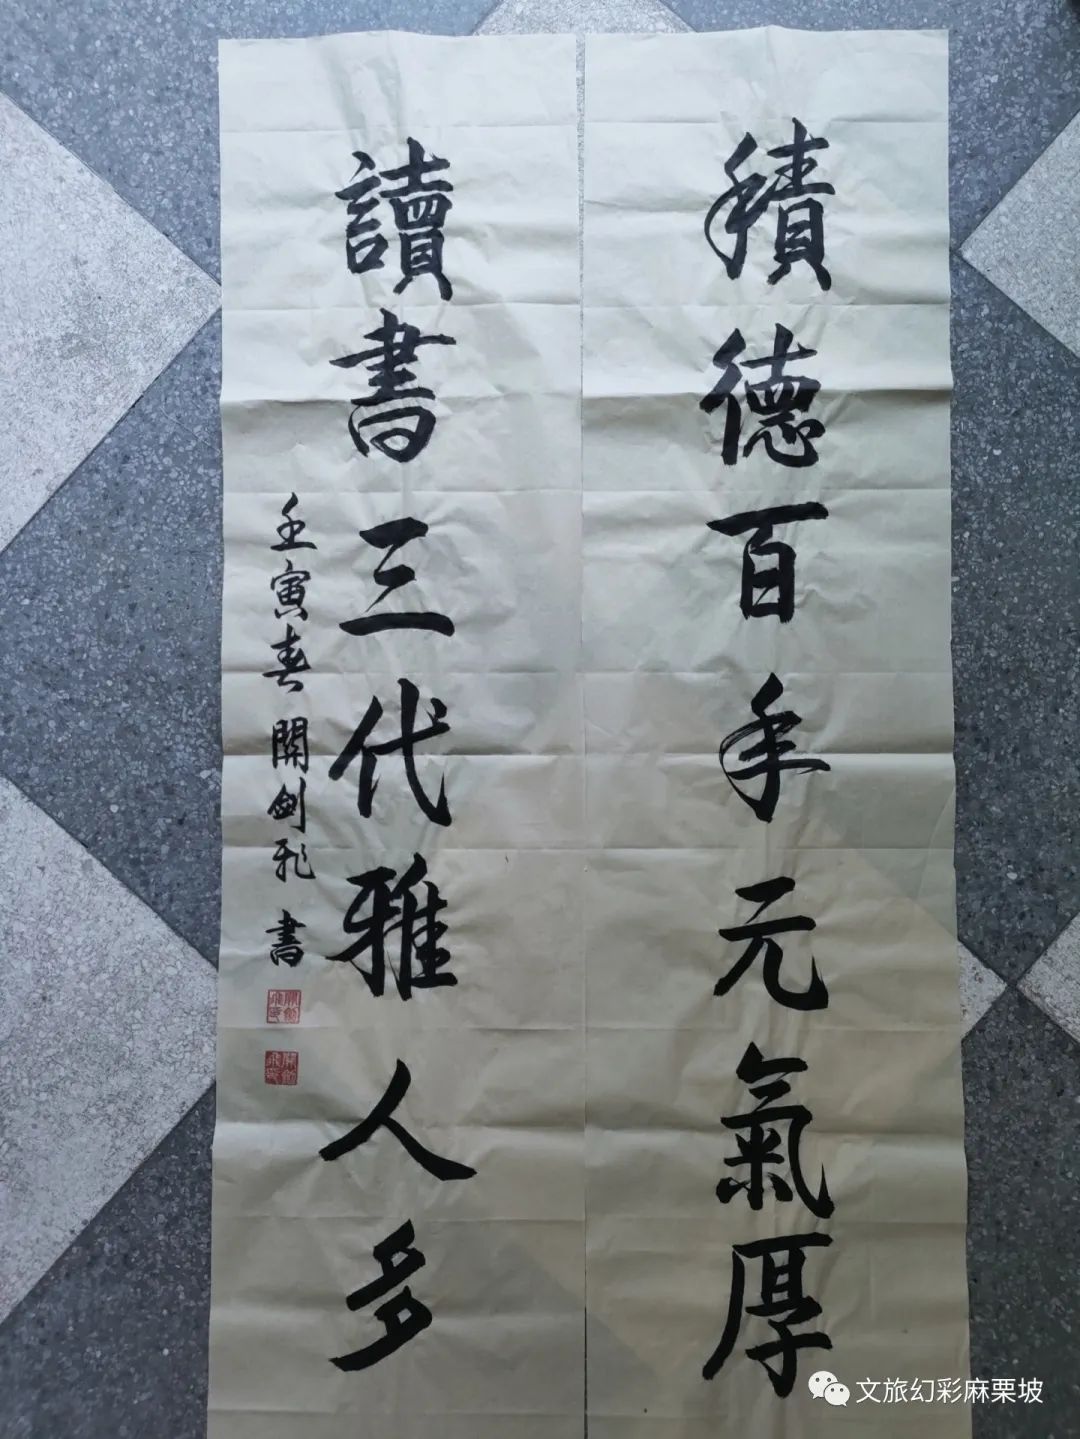 積德百年元氣厚
讀書三代雅人多
壬寅春關劍飛書
文旅幻彩麻栗坡